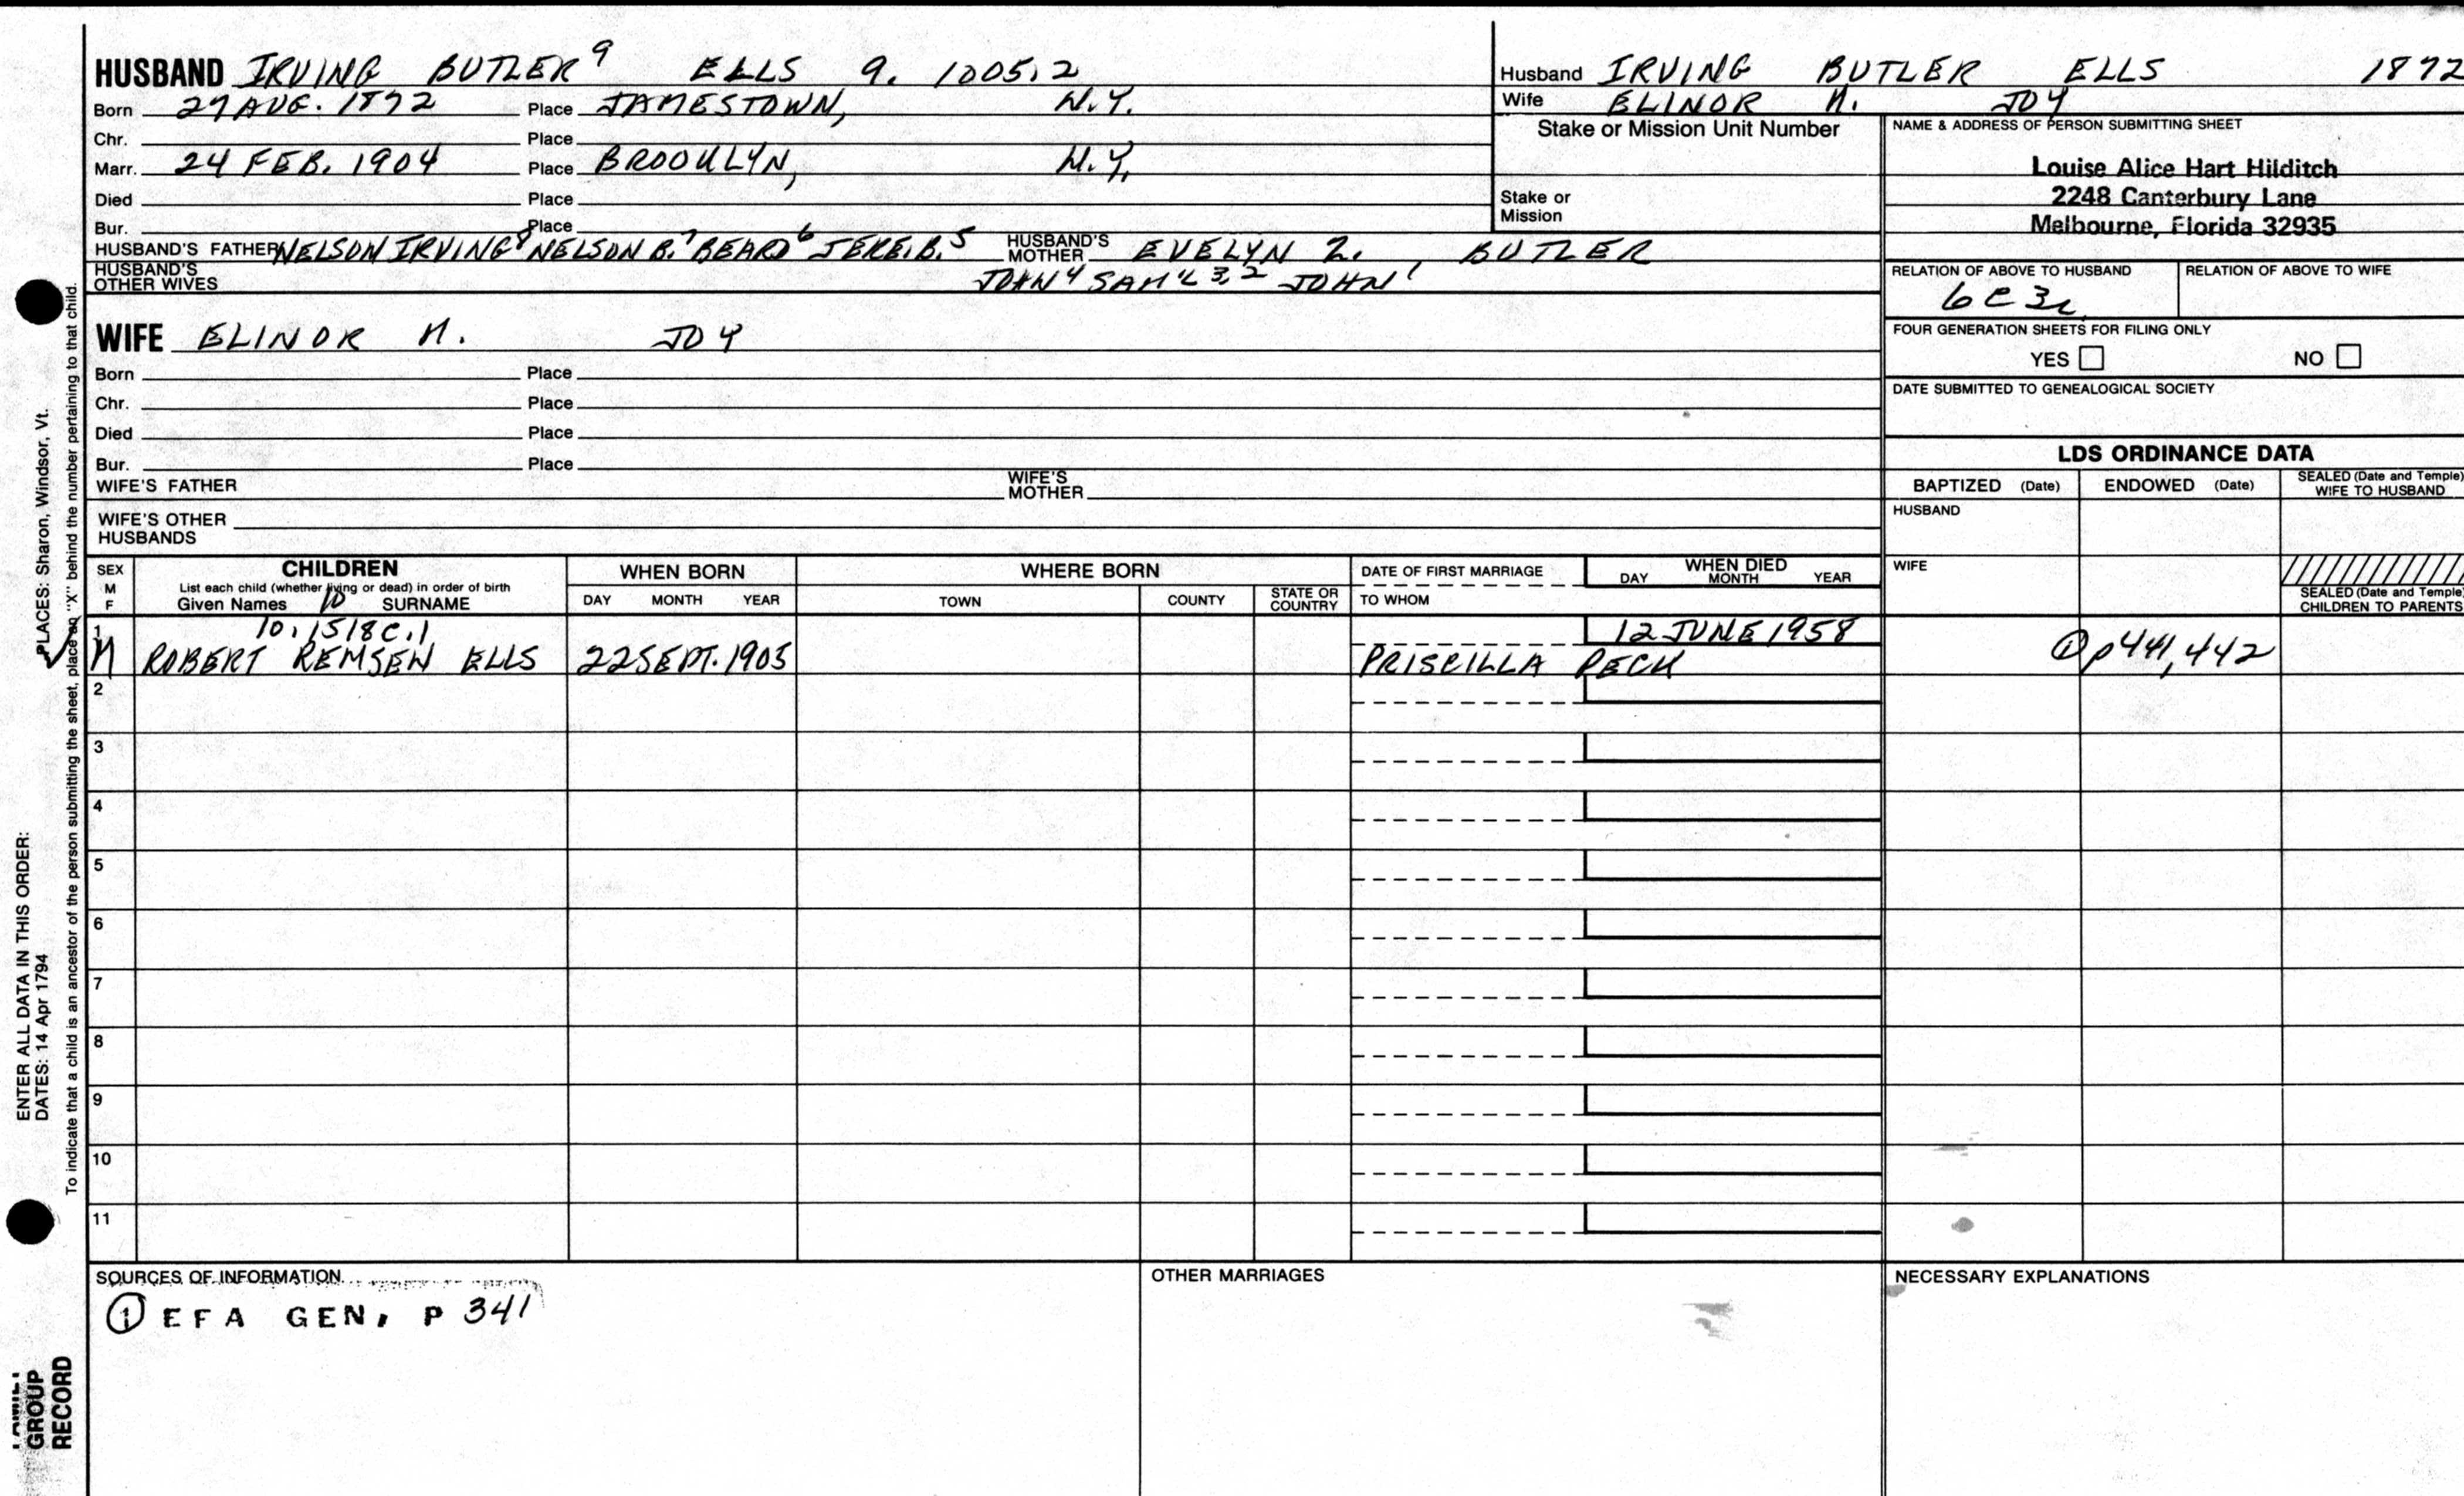 HUSBAND IRVING BUTLER⁹ ELLS 9. 1005.2
Born 27 AUG. 1872 Place JAMESTOWN, N.Y.
Chr. Place
Marr. 24 FEB. 1904 Place BROOKLYN, N.Y.
Died Place
Bur. Place
HUSBAND'S FATHER NELSON IRVING⁸ NELSON B.⁷ BEARD⁶ JERE.B.⁵ HUSBAND'S MOTHER EVELYN Z. BUTLER
HUSBAND'S OTHER WIVES JOHN⁴ SAM'L³,² JOHN¹
WIFE ELINOR M. JOY
Born Place
Chr. Place
Died Place
Bur. Place
WIFE'S FATHER WIFE'S MOTHER
WIFE'S OTHER HUSBANDS
Husband IRVING BUTLER ELLS 1872
Wife ELINOR M. JOY
Stake or Mission Unit Number
Stake or Mission
NAME & ADDRESS OF PERSON SUBMITTING SHEET
Louise Alice Hart Hilditch
2248 Canterbury Lane
Melbourne, Florida 32935
RELATION OF ABOVE TO HUSBAND RELATION OF ABOVE TO WIFE
6C3R
FOUR GENERATION SHEETS FOR FILING ONLY
YES NO
DATE SUBMITTED TO GENEALOGICAL SOCIETY
LDS ORDINANCE DATA
BAPTIZED (Date) ENDOWED (Date) SEALED (Date and Temple) WIFE TO HUSBAND
HUSBAND
WIFE
SEALED (Date and Temple) CHILDREN TO PARENTS
SEX M F CHILDREN WHEN BORN WHERE BORN DATE OF FIRST MARRIAGE WHEN DIED
List each child (whether living or dead) in order of birth DAY MONTH YEAR
Given Names 10 SURNAME DAY MONTH YEAR TOWN COUNTY STATE OR COUNTRY TO WHOM
1 10.1518C.1 12 JUNE 1958
M ROBERT REMSEN ELLS 22 SEPT. 1905 PRISCILLA PECK ① p441,442
2
3
4
5
6
7
8
9
10
11
SOURCES OF INFORMATION OTHER MARRIAGES NECESSARY EXPLANATIONS
① EFA GEN, P 341
ENTER ALL DATA IN THIS ORDER:
DATES: 14 Apr 1794 PLACES: Sharon, Windsor, Vt.
To indicate that a child is an ancestor of the person submitting the sheet, place an "X" behind the number pertaining to that child.
FAMILY
GROUP
RECORD